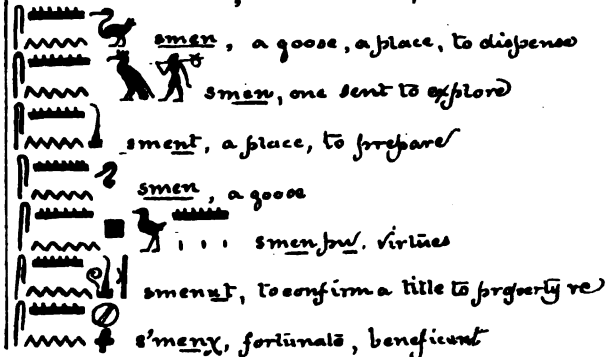 smen, a goose, a place, to dispense
smen, one sent to explore
sment, a place, to prepare
smen, a goose
smenpw. virtues
smenut, to confirm a title to property re
s'menχ, fortunate, beneficent